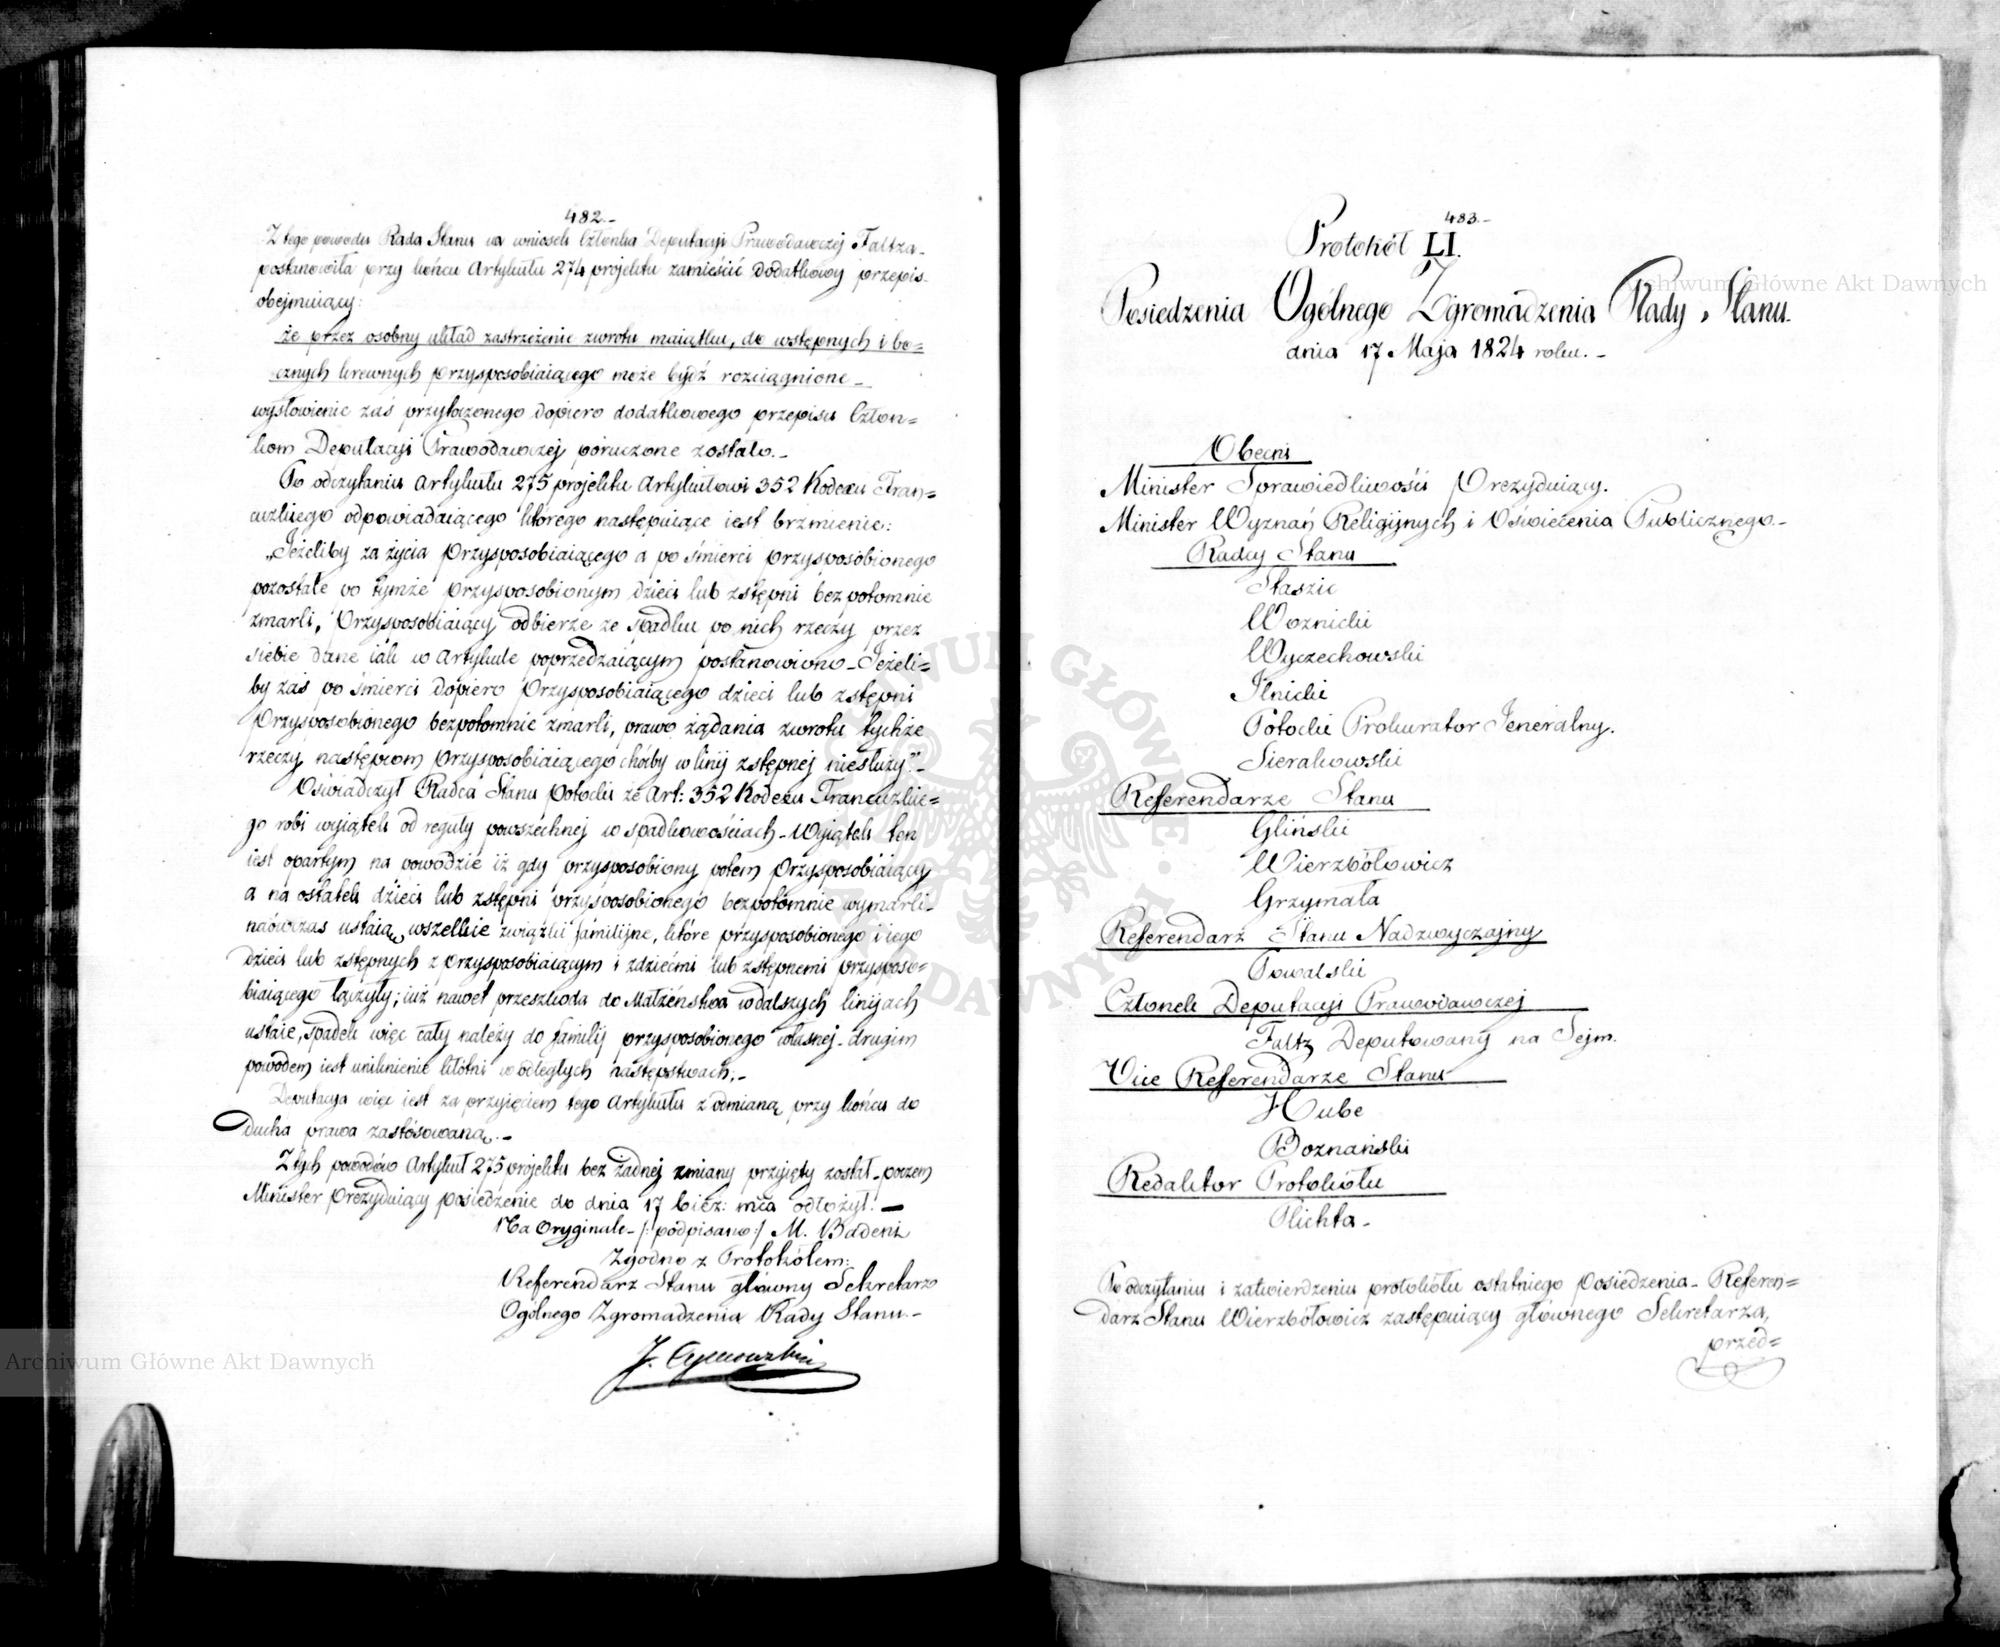 482.-
Z tego powodu Rada Stanu na wniosek Członka Deputacyi Prawodawczéj Faltza-
postanowiła przy końcu Artykułu 274 projektu zamieścić dodatkowy przepis-
obejmuiący:
że przez osobny układ zastrzeżenie zwrotu maiątku, do wstępnych i bo=
cznych krewnych przysposobiaiącego może bydź rozciągnione-
wysłowienie zaś przytoczonego dopiero dodatkowego przepisu Człon=
kom Deputacyi Prawodawczéj poruczone zostało.-
Po odczytaniu Artykułu 275 projektu Artykułowi 352 Kodexu Fran=
cuzkiego odpowiadaiącego którego następuiące iest brzmienie:
„Jeżeliby za życia Przysposobiaiącego a po śmierci przysposobionego
pozostałe po tymże przysposobionym dzieci lub zstępni bezpotomnie
zmarli, Przysposobiaiący odbierze ze spadku po nich rzeczy przez
siebie dane iak w Artykule poprzedzaiącym postanowiono- Jeżeli=
by zaś po śmierci dopiero Przysposobiaiącego dzieci lub zstępni
Przysposobionego bezpotomnie zmarli, prawo żądania zwrotu tychże
rzeczy następcom Przysposobiaiącego choćby w linij zstępnej niesłuży."-
Oświadczył Radca Stanu Potocki że Art: 352 Kodexu Francuzkie=
go robi wyiątek od reguły powszechnej w spadkowościach- Wyiątek ten
iest opartym na powodzie iż gdy przysposobiony potem Przysposobiaiący
a na ostatek dzieci lub zstępni przysposobionego bezpotomnie wymarli-
naówczas ustaią wszelkie związki familijne, które przysposobionego i iego
dzieci lub zstępnych z przysposobiaiącym i z dziećmi lub zstępnemi przysposo=
biaiącego łączyły; iuż nawet przeszkoda do Małżeństwa w dalszych linijach
ustaie, spadek więc cały należy do familij przysposobionego własnej- drugim
powodem iest uniknienie kłótni w odległych następstwach;-
Deputacya więc iest za przyięciem tego Artykułu z odmianą przy końcu do
ducha prawa zastósowaną.-
Z tych powodów Artykuł 275 projektu bez żadnej zmiany przyięty został- poczem
Minister Prezyduiący posiedzenie do dnia 17 bież: mca odłożył.-
Na Oryginale- /:podpisano:/ M. Badeni
Zgodno z Protokółem:
Referendarz Stanu główny Sekretarz
Ogólnego Zgromadzenia Rady Stanu.-
483.-
Protokół LI.
Posiedzenia Ogólnego Zgromadzenia Rady Stanu.
dnia 17 Maja 1824 roku.-
Obecni
Minister Sprawiedliwości Prezyduiący.
Minister Wyznań Religijnych i Oświecenia Publicznego.-
Radcy Stanu
Staszic
Woznicki
Wyczechowski
Ilnicki
Potocki Prokurator Jeneralny.
Sierakowski
Referendarze Stanu
Gliński
Wierzbółowicz
Grzymała
Referendarz Stanu Nadzwyczajny
Powalski
Członek Deputacyi Prawodawczej
Faltz Deputowany na Sejm.
Vice Referendarze Stanu
Hube
Boznański
Redaktor Protokółu
Plichta-
Po odczytaniu i zatwierdzeniu protokółu ostatniego Posiedzenia- Referen=
darz Stanu Wierzbółowicz zastępuiący głównego Sekretarza,
przed=
Archiwum Główne Akt Dawnych
Archiwum Główne Akt Dawnych
ARCHIWUM GŁÓWNE AKT DAWNYCH